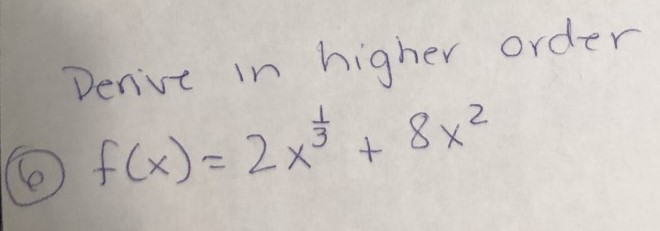 Derive in higher order
6 f(x) = 2x^{1/3} + 8x^2